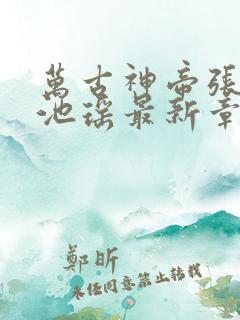 萬古神帝張
池瑤最新章
鄭昕
未经同意禁止转载